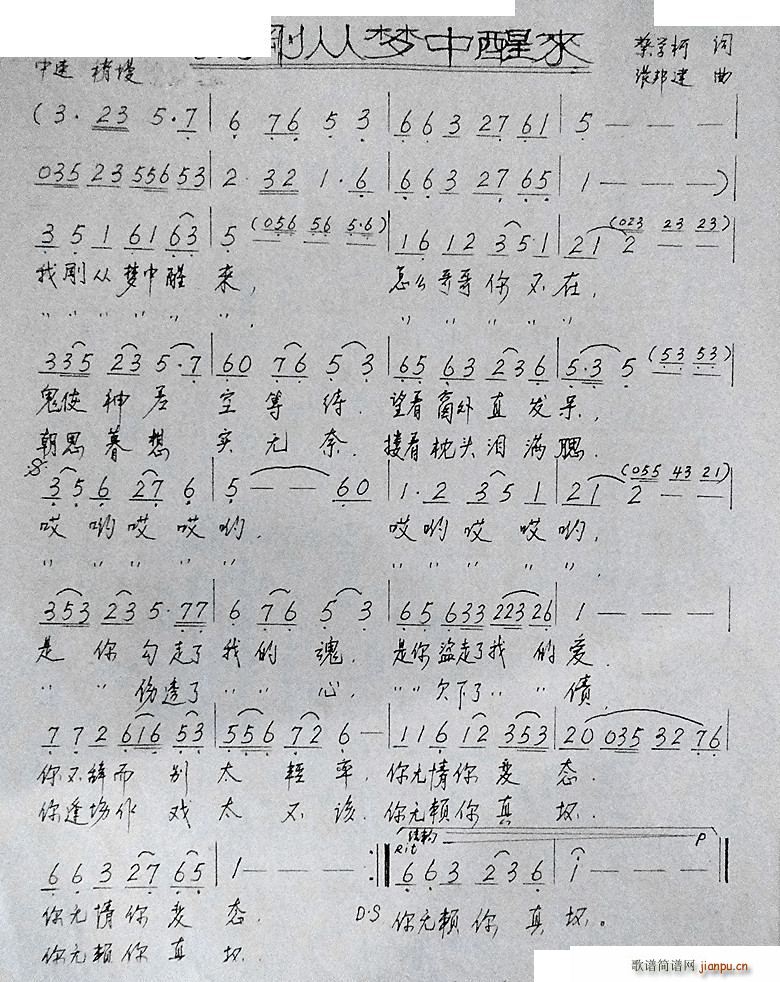 刚从梦中醒来
词
中速 稍慢
曲
(3·23 5·7 | 6 76 5 3 | 663 2761 | 5 - - - |
035 23 55653 | 2·32 1·6 | 663 2765 | 1 - - - )
3 5 1 61 63 | 5 (056 56 5·6) | 16 12 3 5·1 | 21 2 (023 23 23) |
我刚从梦中醒来， 怎么哥哥你不在，
〃 〃 〃 〃 〃 〃， 〃 〃 〃 〃 〃
335 23 5·7 | 60 76 5 3 | 65 63 236 | 5·3 5 (53 53) |
鬼使神差空等待． 望着窗外直发呆，
朝思暮想实无奈． 搂着枕头泪满腮．
3 5 6 27 6 | 5 - - 60 | 1·2 35 1 | 21 2 - - (055 43 21) |
哎哟哎哎哟， 哎哟哎哎哟，
〃 〃 〃 〃 〃， 〃 〃 〃 〃 〃，
353 23 5·77 | 6 76 5 3 | 65 633 22326 | 1 - - - |
是你勾走了我的魂． 是你盗走了我的爱．
〃 〃 伤透了 〃 〃 心， 〃〃 欠下了 〃 〃 债，
7 72 616 53 | 556 72 6 - | 116 12 353 | 20 035 32 76 |
你不辞而别太轻率． 你无情你变态．
你逢场作戏太不该． 你无赖你真坏．
结束句
Rit P
663 27 65 | 1 - - - :‖ 663 236 | i - - ‖
你无情你变态． D·S 你无赖你真坏。
你无赖你真坏．
歌谱简谱网 jianpu.cn